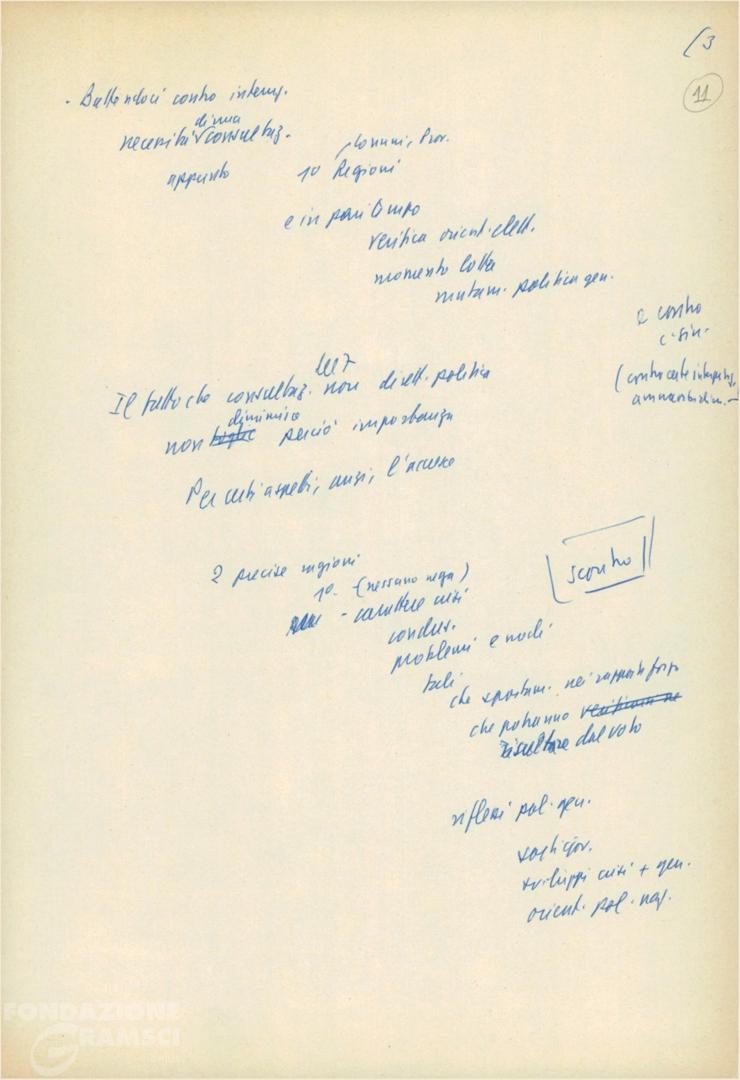 (3
11
- Battendoci contro
di una
necessità consultaz.
appunto
Comuni, Prov.
1º Regioni
e in pari tempo
verifica orient. elett.
momento lotta
mutam. politica gen.
e contro
c. sin.
(contro certe interpretaz.
Il fatto che consultaz. non dirett. politica
diminuisce
non toglie perciò importanza
Per certi aspetti, anzi, l'accresce
2 precise ragioni
scontro
1º. (nessuno nega)
- carattere crisi
condiz.
problemi e nodi
tali
che spostam. nei rapporti forza
che potranno verificarsi ne
risultare dal voto
riflessi pol. gen.
sorti gov.
sviluppi crisi + gen.
orient. pol. naz.
FONDAZIONE
GRAMSCI